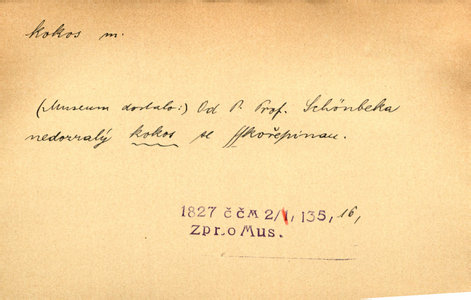 kokos m.
(Museum dostalo:) Od P. Prof. Schönbeka
nedozralý kokos se skořepinau.
1827 ČČM 2/1, 135, 16,
Zpr.o Mus.